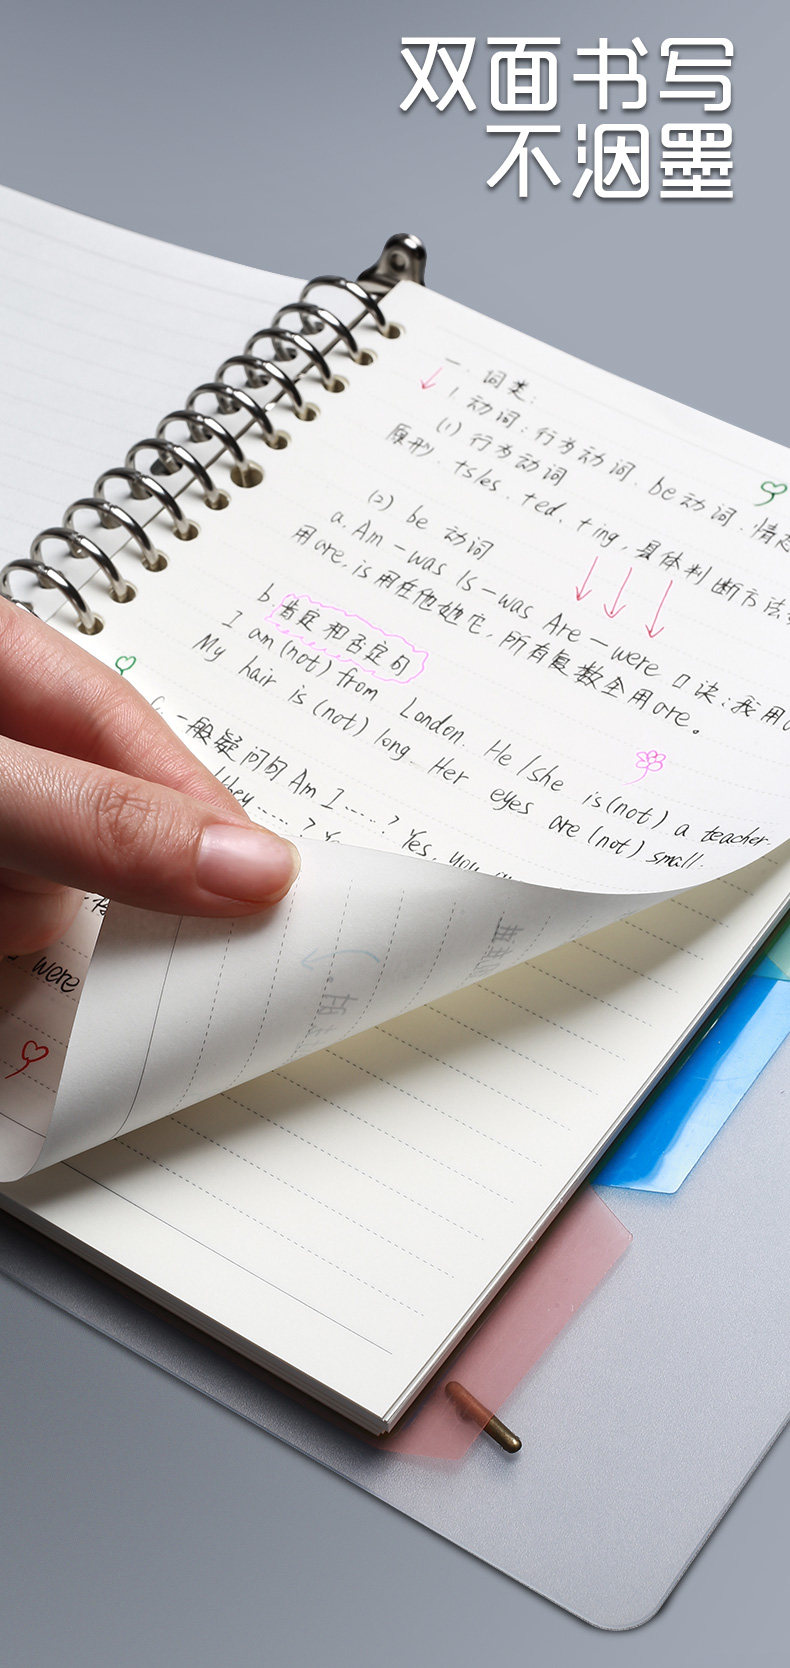 双面书写
不洇墨
一. 词类:
1. 动词: 行为动词. be动词. 情态
(1) 行为动词
原形. +s/es. +ed. +ing, 具体判断方法
(2) be 动词
a. Am - was Is - was Are - were 口诀: 我用a
用are, is用在他她它, 所有复数全用are。
b 肯定和否定句
I am (not) from London. He/she is (not) a teacher.
My hair is (not) long. Her eyes are (not) small.
一般疑问句 Am I ……? Yes, you
they ……?
were